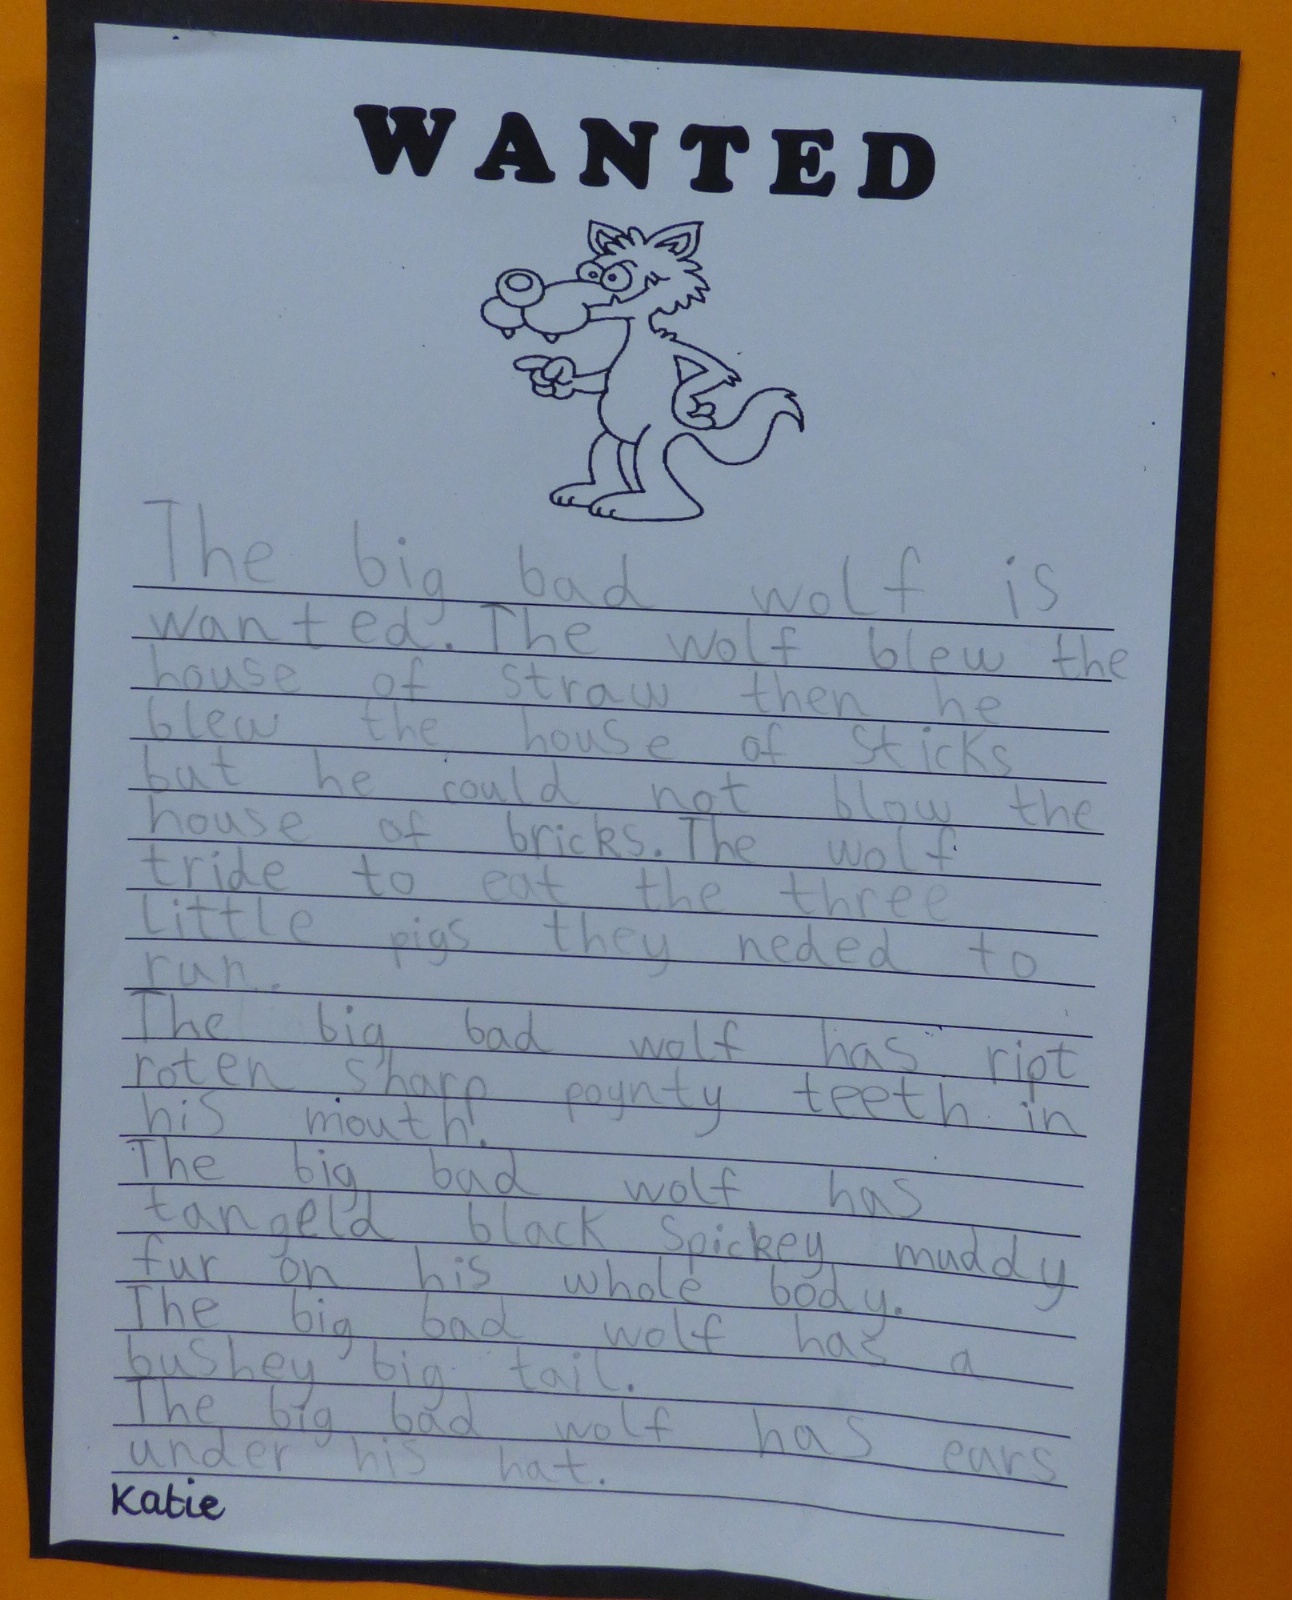 WANTED
The big bad wolf is
wanted. The wolf blew the
house of straw then he
blew the house of sticks
but he could not blow the
house of bricks. The wolf
tride to eat the three
little pigs they neded to
run.
The big bad wolf has ript
roten sharp poynty teeth in
his mouth!
The big bad wolf has
tangeld black spickey muddy
fur on his whole body.
The big bad wolf has a
bushey big tail.
The big bad wolf has ears
under his hat.
Katie